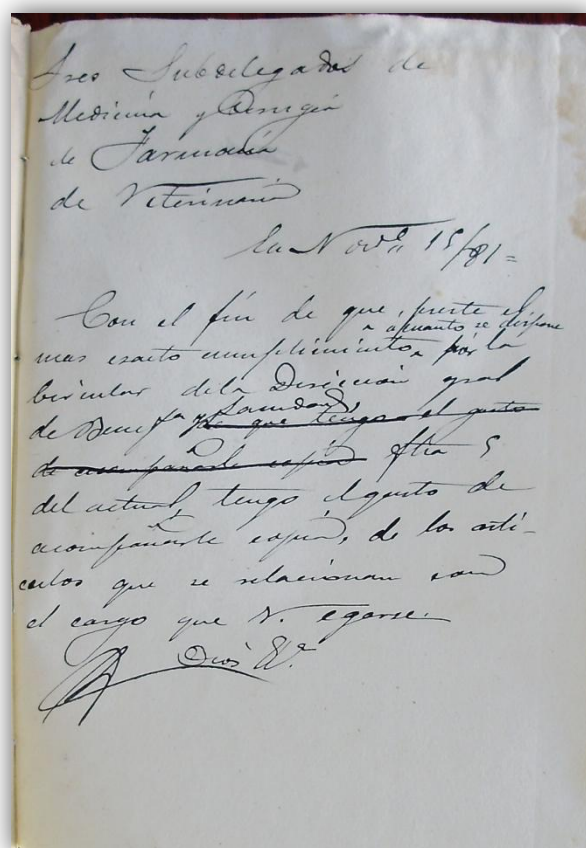 Sres Subdelegados de
Medicina y Cirugia
de Farmacia
de Veterinaria
En Novᵉ 15/81=
Con el fin de que, preste el
mas esacto cumplimiento a cuanto se dispone por la
Circular de la Direccion gral
de Benefᵃ y Sanidad, que tengo el gusto
de acompañarle copia ftra 5
del actual, tengo el gusto de
acompañarle copia, de los artí-
culos que se relacionan con
el cargo que V. egerse.
Dios Vᵉ